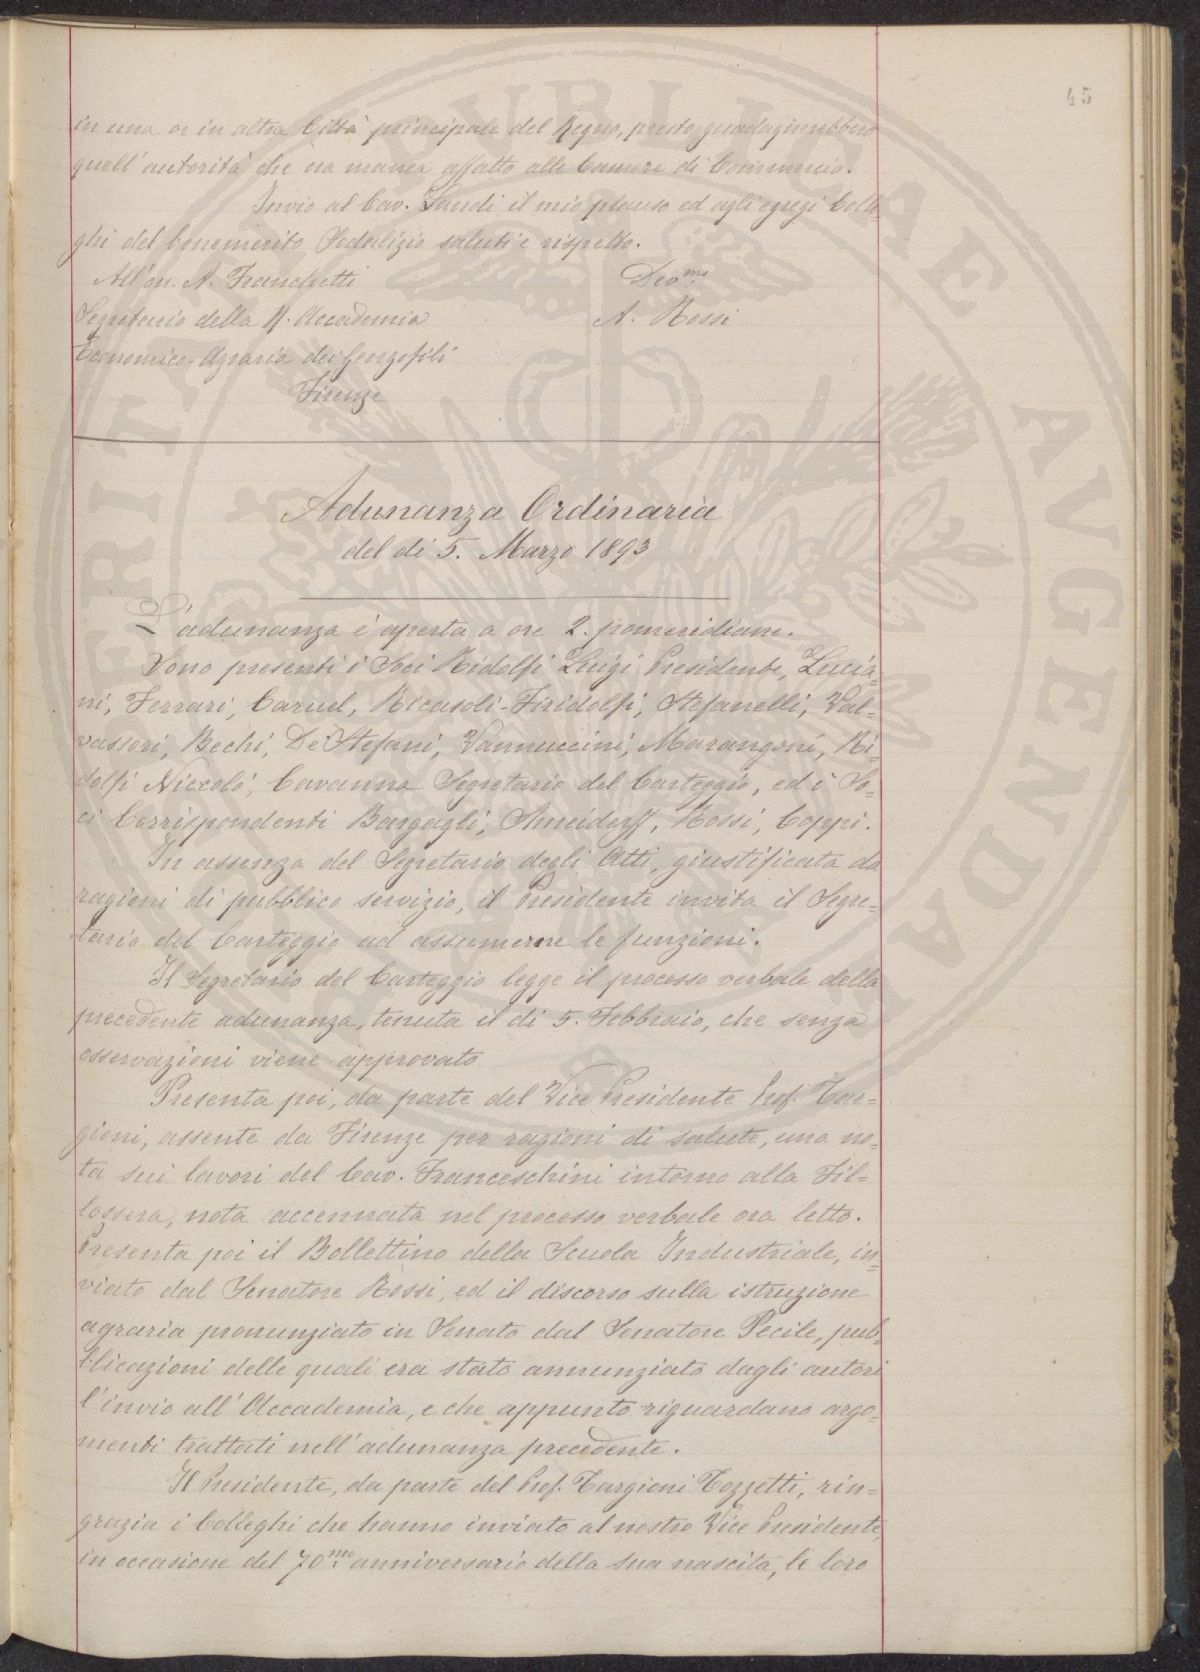 45
in una or in altra Città principale del Regno, presto guadagnerebbero
quell'autorità che ora manca affatto alle Camere di Commercio.
Invio al Cav. Sandi il mio plauso ed agli egregi Colle-
ghi del benemerito Sodalizio saluti e rispetto.
All'on. A. Franchetti Devmo
Segretario della R. Accademia A. Rossi
Economico-Agraria dei Georgofili
Firenze
Adunanza Ordinaria
del dì 5. Marzo 1893
L'adunanza è aperta a ore 2. pomeridiane.
Sono presenti i Soci Ridolfi Luigi Presidente, Lucia-
ni, Ferrari, Caruel, Ricasoli-Firidolfi, Stefanelli, Val-
vassori, Bechi, De Stefani, Vannuccini, Marangoni, Ri-
dolfi Niccolò, Cavanna Segretario del Carteggio, ed i So-
ci Corrispondenti Bargagli, Rossi, Coppi.
In assenza del Segretario degli Atti, giustificata da
ragioni di pubblico servizio, il Presidente invita il Segre-
tario del Carteggio ad assumerne le funzioni.
Il Segretario del Carteggio legge il processo verbale della
precedente adunanza, tenuta il dì 5. Febbraio, che senza
osservazioni viene approvato
Presenta poi, da parte del Vice Presidente Prof. Tar-
gioni, assente da Firenze per ragioni di salute, una no-
ta sui lavori del Cav. Franceschini intorno alla Fil-
lossera, nota accennata nel processo verbale ora letto.
Presenta poi il Bollettino della Scuola Industriale, in-
viato dal Senatore Rossi, ed il discorso sulla istruzione
agraria pronunziato in Senato dal Senatore Pecile, pub-
blicazioni delle quali era stato annunziato dagli autori
l'invio all'Accademia, e che appunto riguardano argo-
menti trattati nell'adunanza precedente.
Il Presidente, da parte del Prof. Targioni Tozzetti, rin-
grazia i Colleghi che hanno inviato al nostro Vice Presidente,
in occasione del 70mo anniversario della sua nascita, le loro